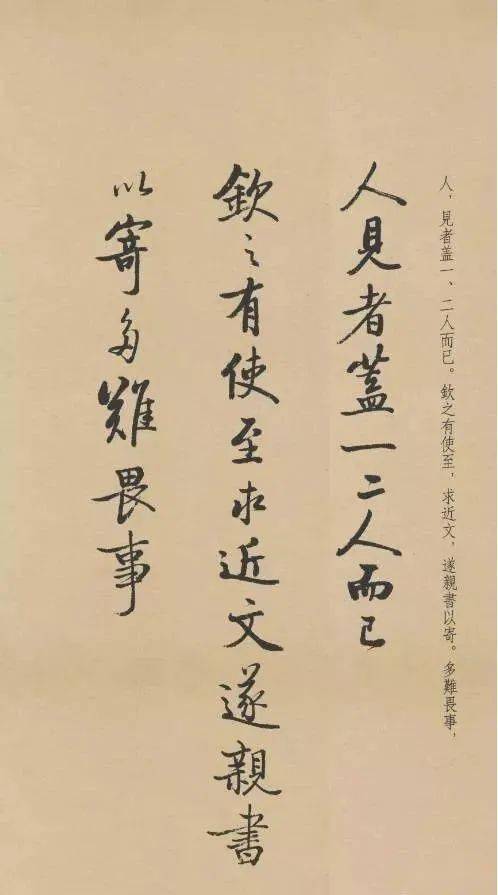 人，見者盖一、二人而已。欽之有使至，求近文，遂親書以寄。多難畏事，
人見者蓋一二人而已
欽之有使至求近文遂親書
以寄多難畏事